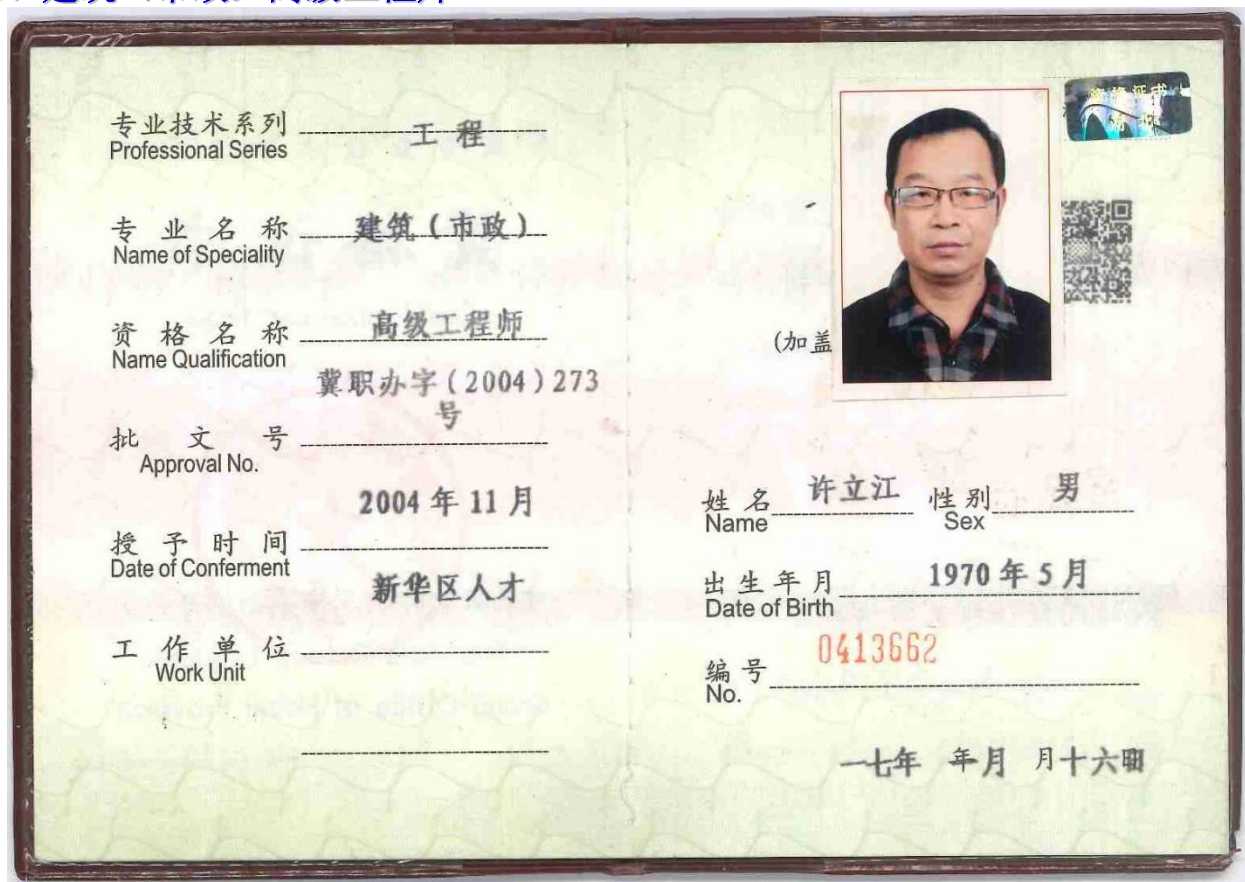 专业技术系列 工程
Professional Series
专业名称 建筑（市政）
Name of Speciality
资格名称 高级工程师
Name Qualification
冀职办字（2004）273
号
批文号
Approval No.
2004年11月
授予时间
Date of Conferment
新华区人才
工作单位
Work Unit
(加盖
姓名 许立江 性别 男
Name Sex
出生年月 1970年5月
Date of Birth
编号 0413662
No.
一七年 年月 月十六日